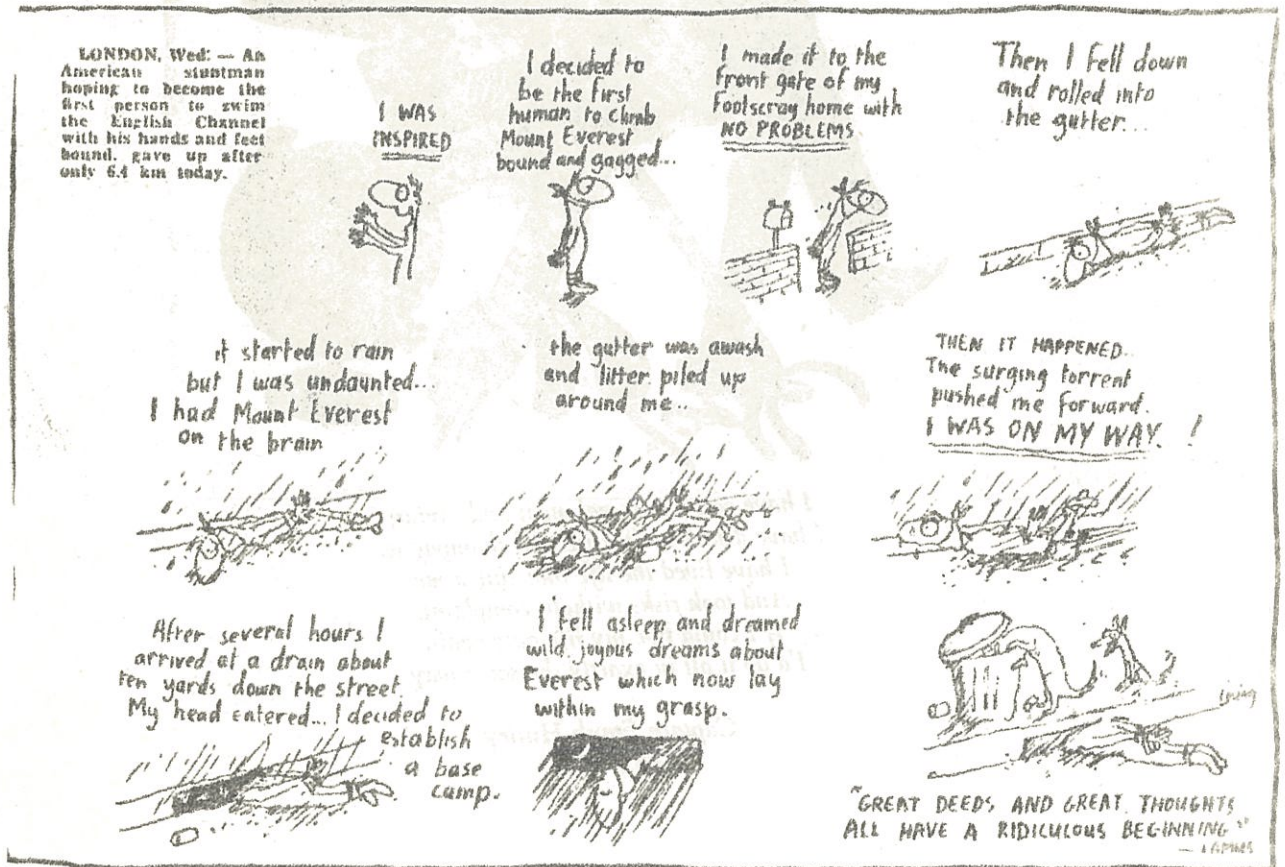 LONDON, Wed: — An
American stuntman
hoping to become the
first person to swim
the English Channel
with his hands and feet
bound, gave up after
only 6.4 km today.
I WAS
INSPIRED
I decided to
be the first
human to climb
Mount Everest
bound and gagged...
I made it to the
front gate of my
Footscray home with
NO PROBLEMS
Then I fell down
and rolled into
the gutter...
it started to rain
but I was undaunted...
I had Mount Everest
on the brain
the gutter was awash
and litter piled up
around me..
THEN IT HAPPENED..
The surging torrent
pushed me forward.
I WAS ON MY WAY. !
After several hours I
arrived at a drain about
ten yards down the street.
My head entered... I decided to
establish
a base
camp.
I fell asleep and dreamed
wild, joyous dreams about
Everest which now lay
within my grasp.
"GREAT DEEDS AND GREAT THOUGHTS
ALL HAVE A RIDICULOUS BEGINNING"
— CAMUS